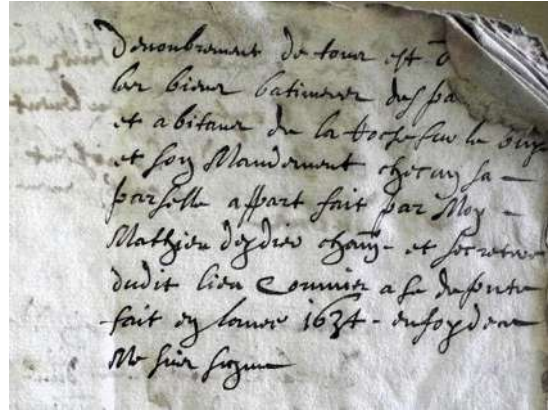 Denonbrement de tous est
les biens batimens des pa
et abitans de la Roche sur le buys
et son Mandement checun sa
parselle appart fait par Moy
Mathieu deydier et secretere
dudit lieu Commis a se depute
fait en lanee 1634 - en foy de ce
Me suis signe